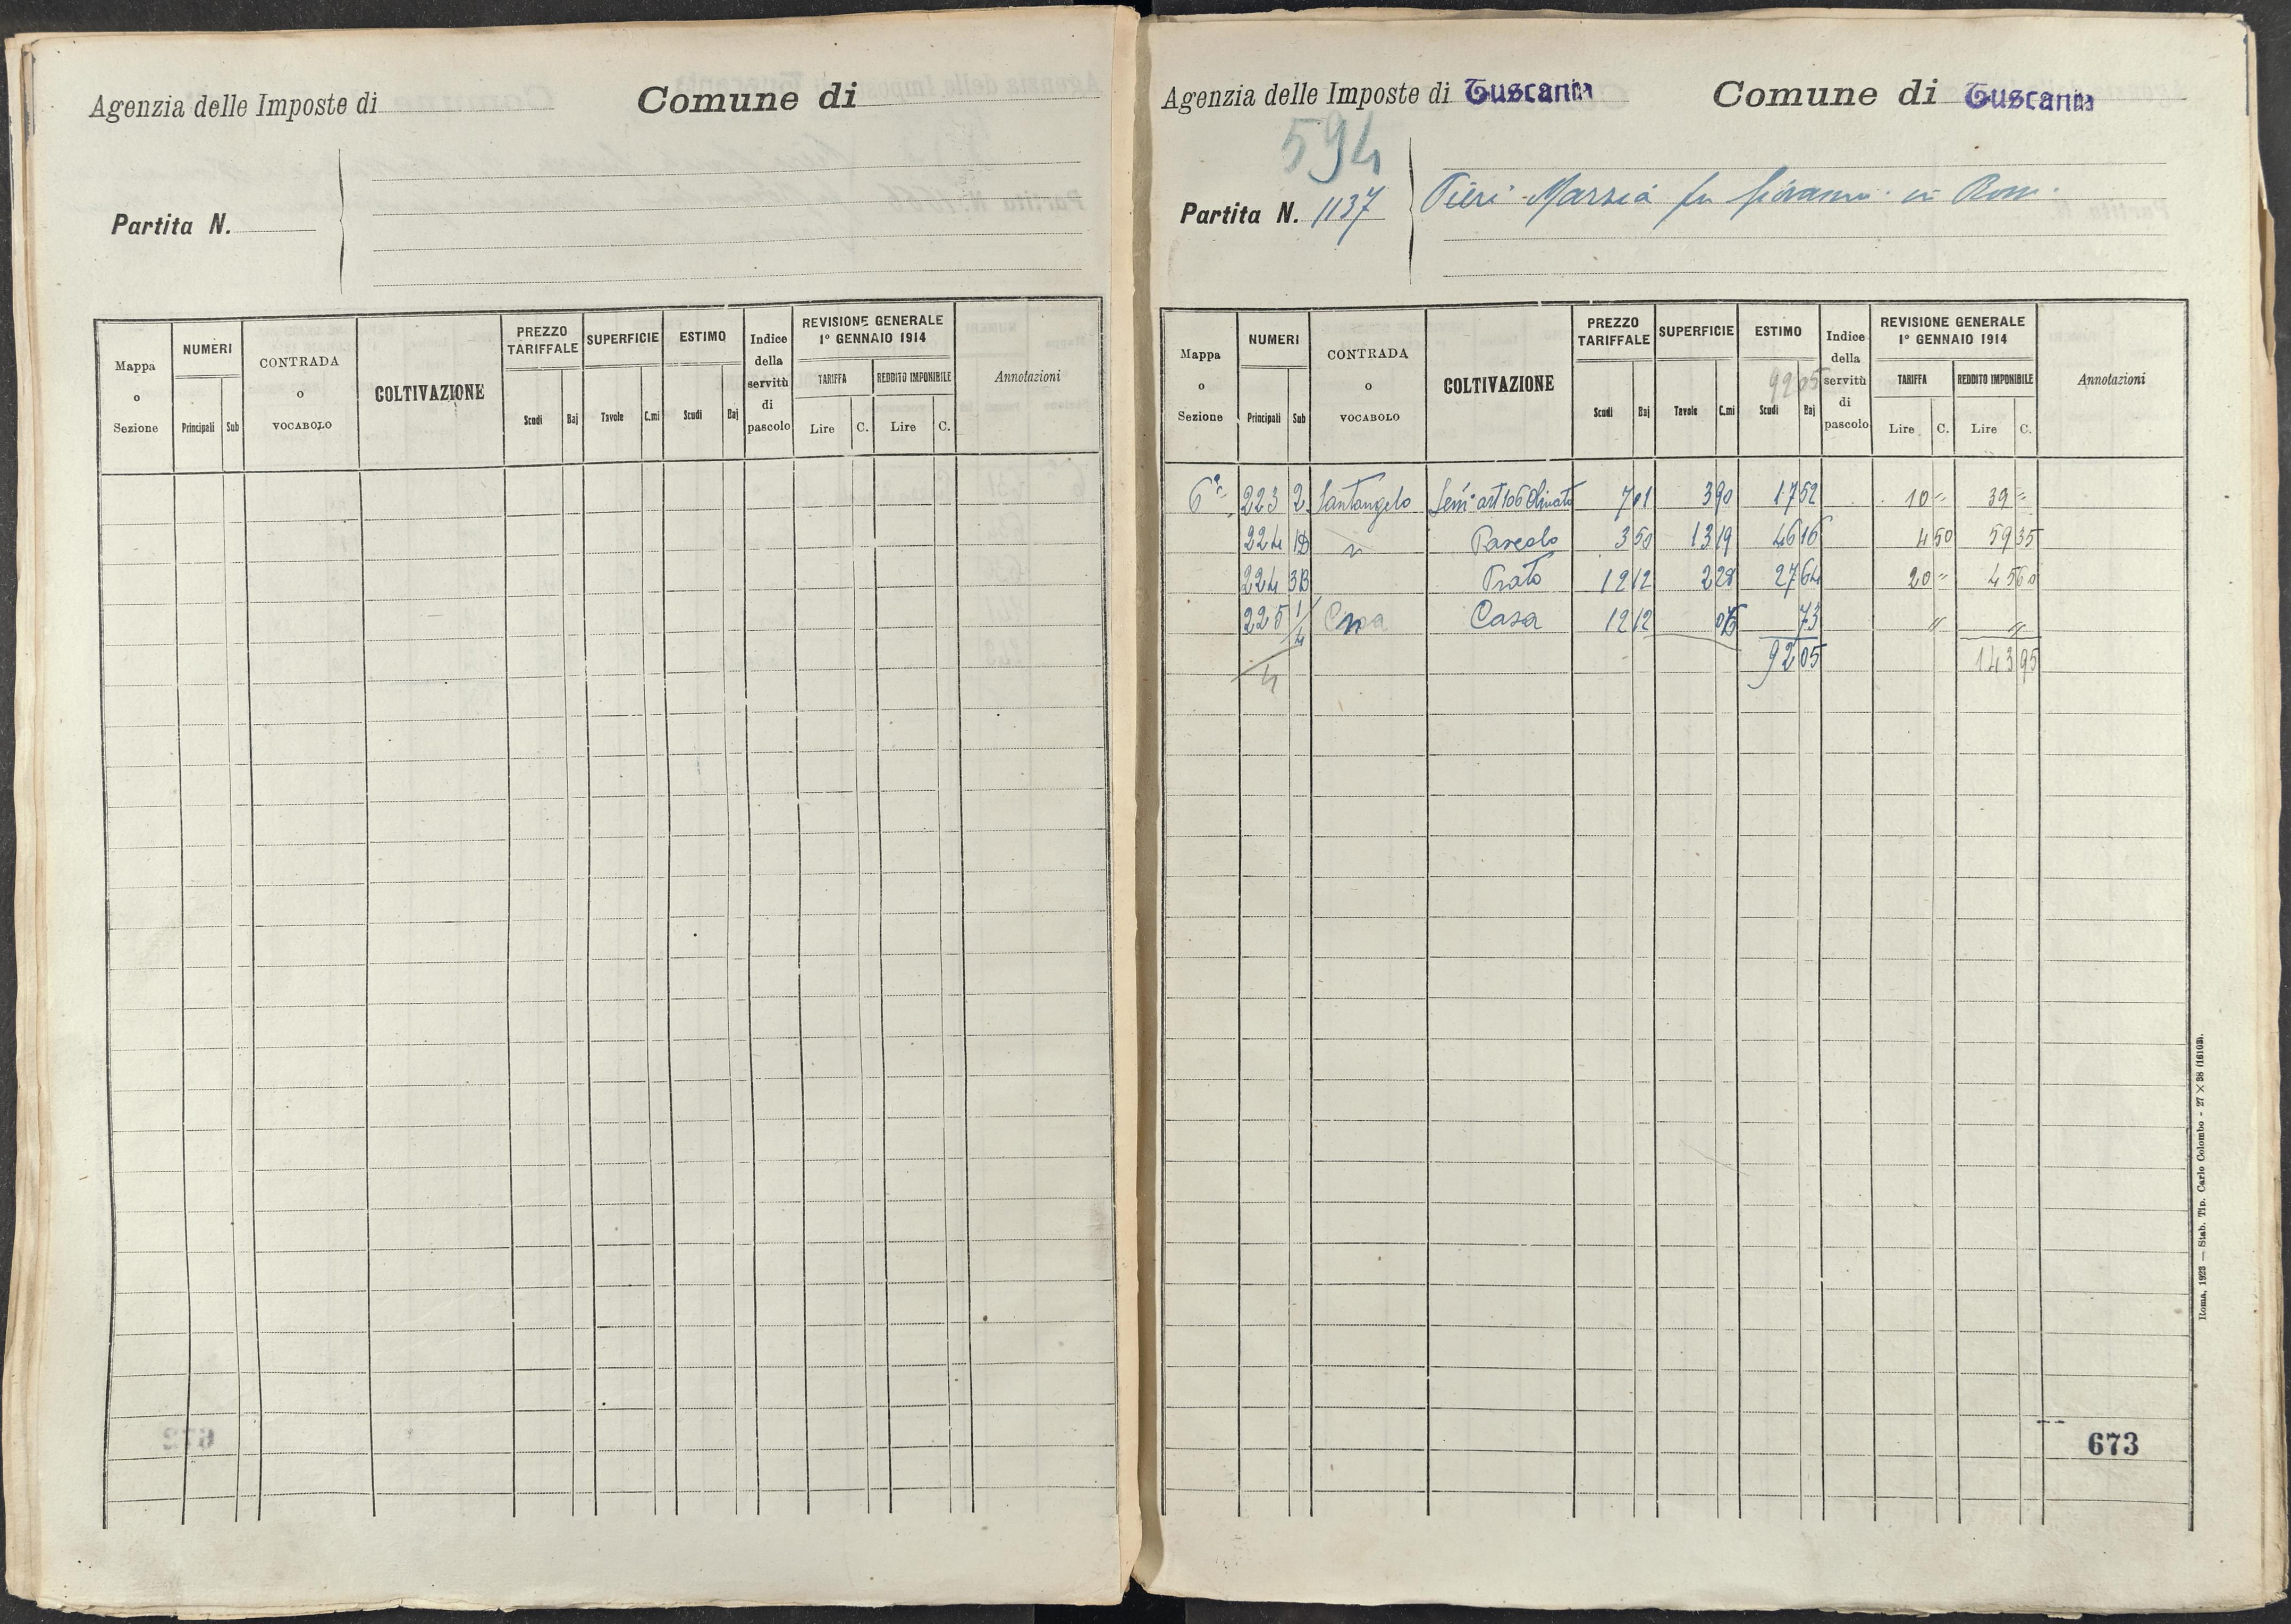 Agenzia delle Imposte di Comune di
Partita N.
Mappa o Sezione NUMERI Principali Sub CONTRADA o VOCABOLO COLTIVAZIONE PREZZO TARIFFALE Scudi Baj SUPERFICIE Tavole C.mi ESTIMO Scudi Baj Indice della servitù di pascolo REVISIONE GENERALE 1° GENNAIO 1914 TARIFFA Lire C. REDDITO IMPONIBILE Lire C. Annotazioni
Agenzia delle Imposte di Tuscania Comune di Tuscania
594
Partita N. 1137 Pieri Marzia fu Giovanni in
Mappa o Sezione NUMERI Principali Sub CONTRADA o VOCABOLO COLTIVAZIONE PREZZO TARIFFALE Scudi Baj SUPERFICIE Tavole C.mi ESTIMO 9205 Scudi Baj Indice della servitù di pascolo REVISIONE GENERALE 1° GENNAIO 1914 TARIFFA Lire C. REDDITO IMPONIBILE Lire C. Annotazioni
6ª 223 2 Santangelo Semº art 106 Olivato 7 01 3 90 17 52 10 " 39 "
224 " Pascolo 3 50 13 19 46 16 4 50 59 35
224 3B Prato 12 12 2 28 27 64 20 " 45 60
225 1/4 Casa 12 12 06 73 " "
92 05 143 95
4
673
Roma, 1923 — Stab. Tip. Carlo Colombo - 27 × 38 (16103).